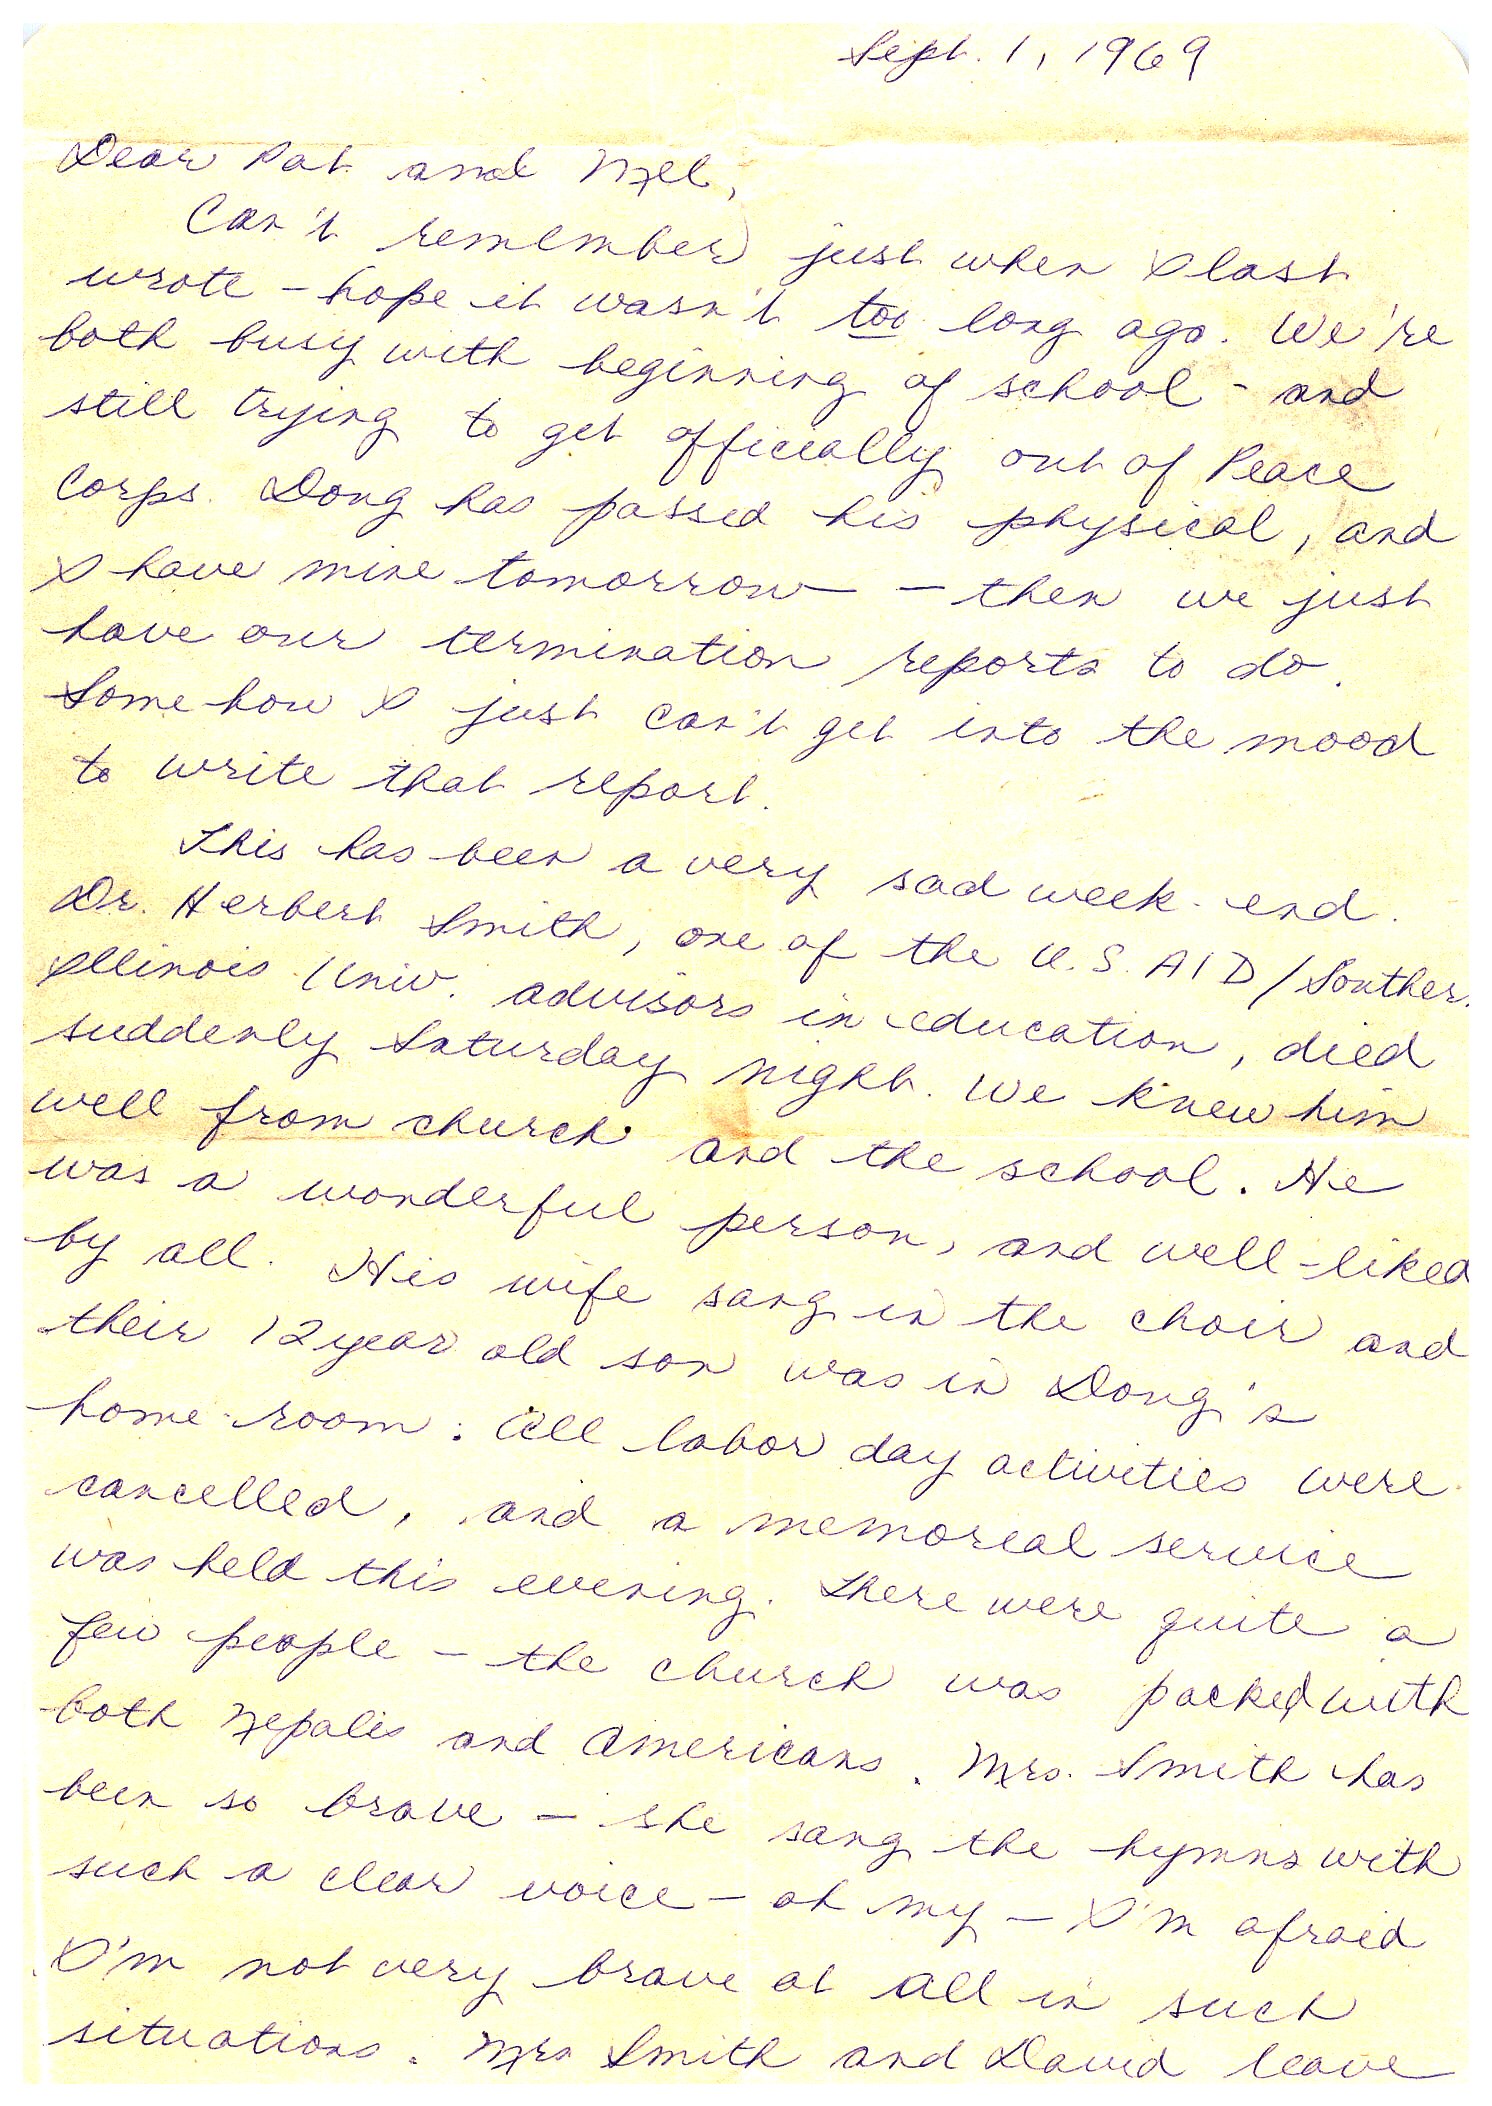 Sept. 1, 1969
Dear Pat and Mel,
Can't remember just when I last
wrote – hope it wasn't too long ago. We're
both busy with beginning of school – and
still trying to get officially out of Peace
Corps. Doug has passed his physical, and
I have mine tomorrow – then we just
have our termination reports to do.
Somehow I just can't get into the mood
to write that report.
This has been a very sad week-end.
Dr. Herbert Smith, one of the U.S. AID/Southern
Illinois Univ. advisors in education, died
suddenly Saturday night. We knew him
well from church and the school. He
was a wonderful person, and well-liked
by all. His wife sang in the choir and
their 12 year old son was in Doug's
home-room. All labor day activities were
cancelled, and a memorial service
was held this evening. There were quite a
few people – the church was packed with
both Nepalis and Americans. Mrs. Smith has
been so brave – she sang the hymns with
such a clear voice – oh my – I'm afraid
I'm not very brave at all in such
situations. Mrs Smith and David leave